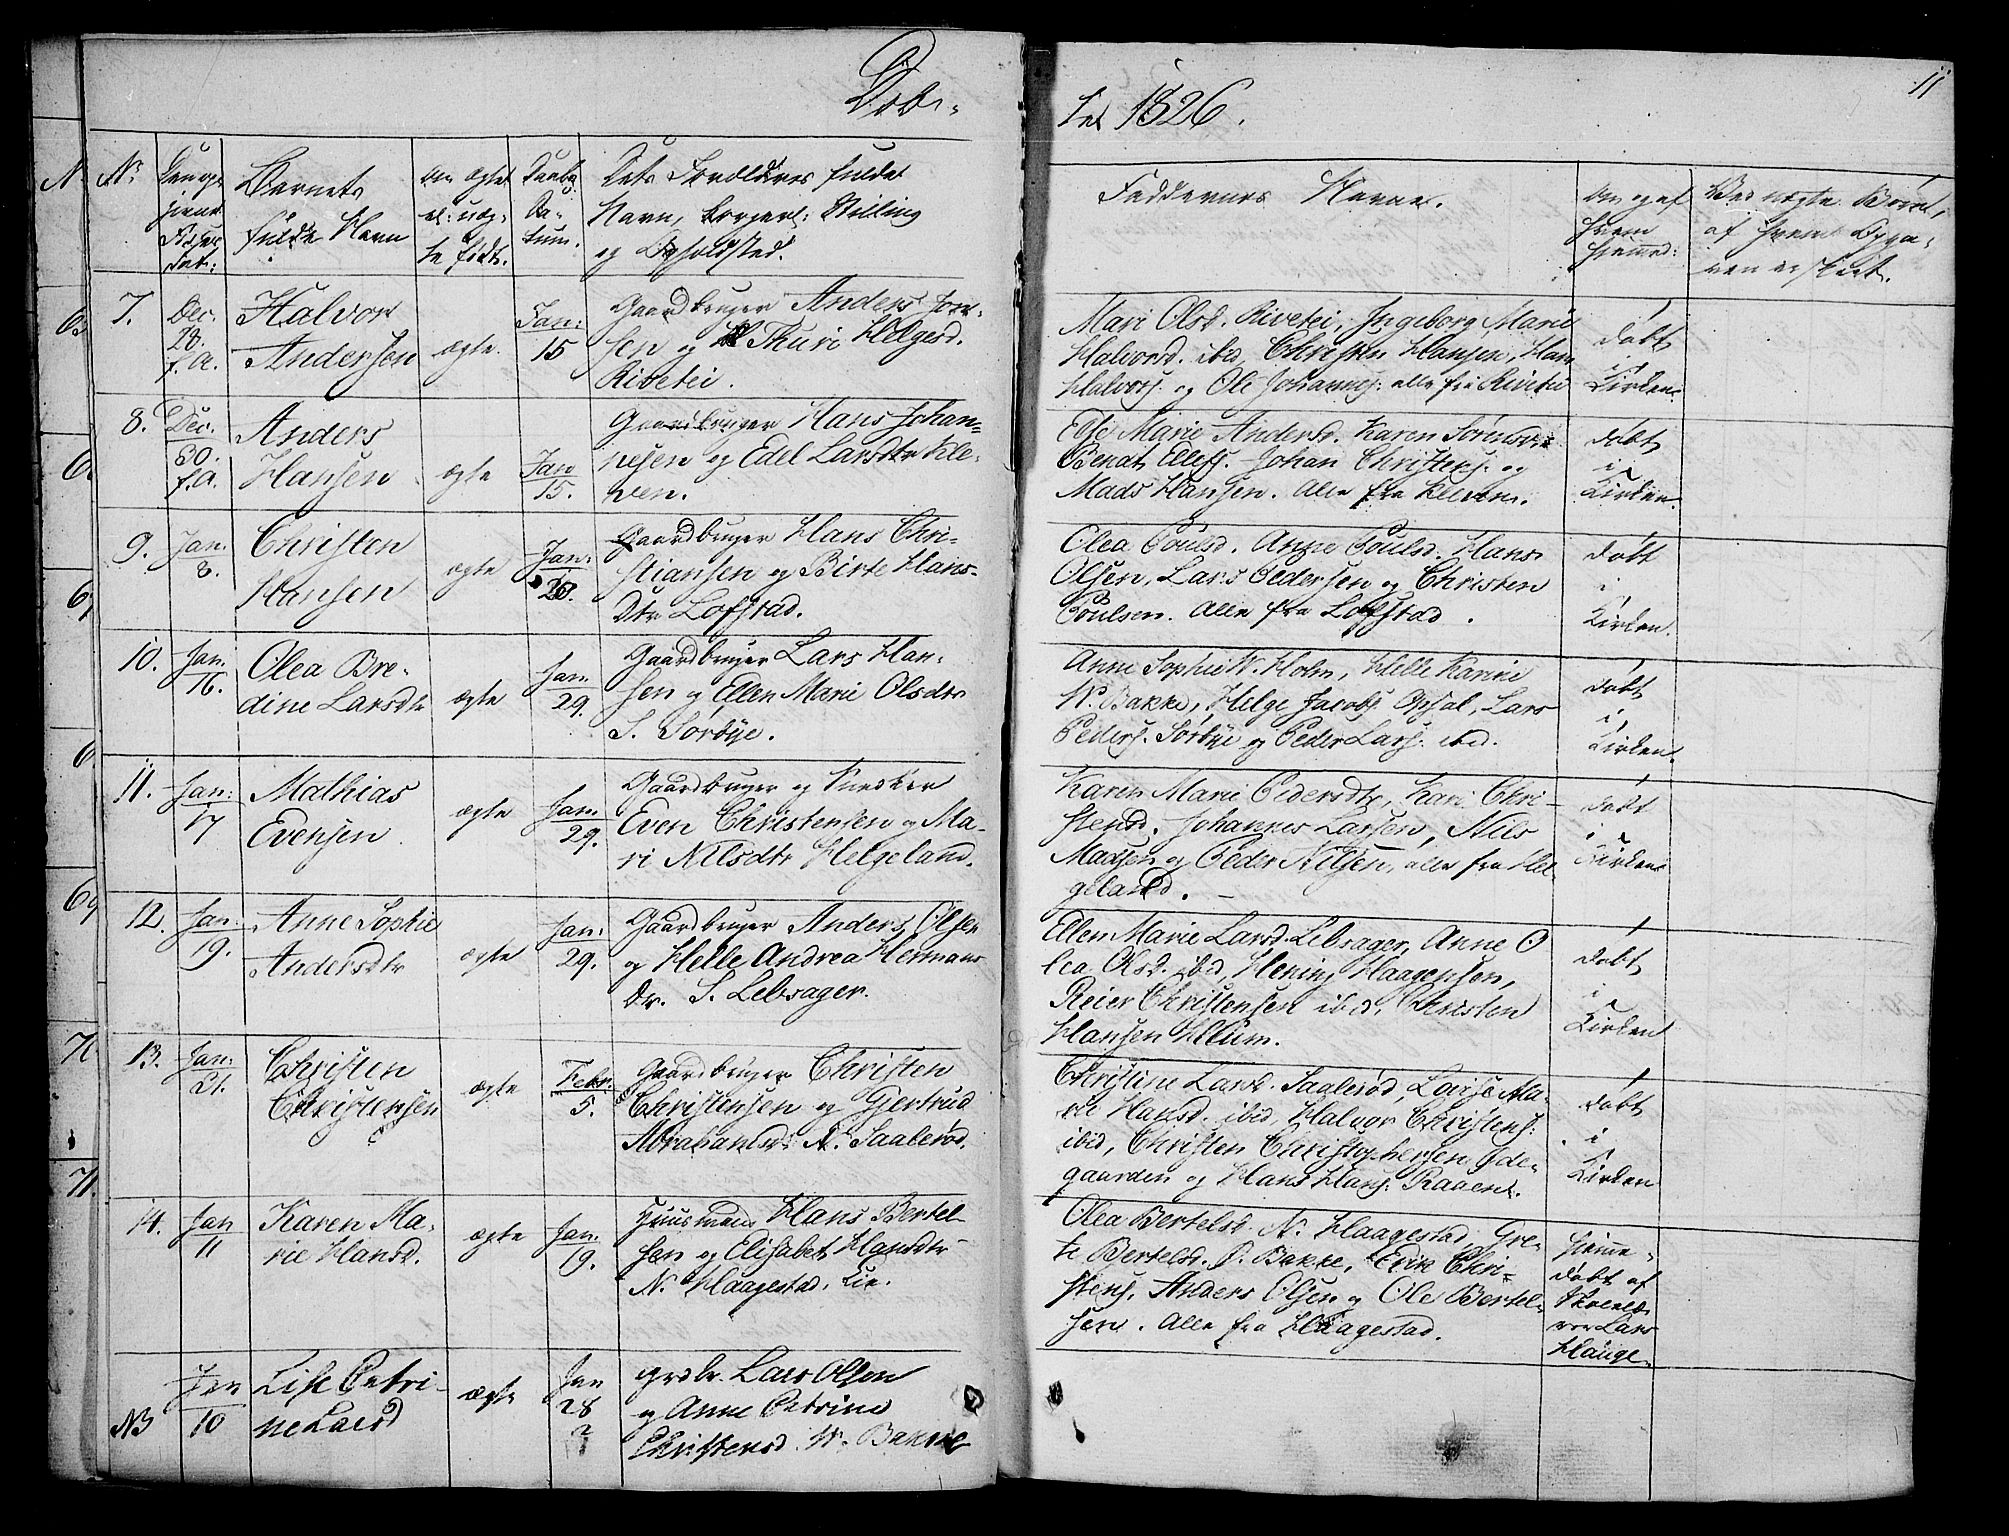 Døb-
te 1826.
11
N.
No
Barnets
fulde Navn
om ægte
el: uæg-
te født.
Daabs
Da-
tum.
Dets Forældres fulde
Navn, borgerl: Stilling
og Opholdsted.
Faddernes Navne.
om og af
hvem
hiemmed:
Ved uægte Børn,
af hvem Opga-
ven er skeet.
7.
Dec.
28.
f. A.
Halvor
Andersen
ægte.
Jan:
15
Gaardbruger Anders Jon-
sen og Thuri Helgesd.
Rivetei.
Mari Olsd. Rivetei, Ingeborg Marie
Halvorsd. ibid, Christen Hansen, Hans
Halvors: og Ole Johannes: alle fra Rivetei
døbt
i
Kirken.
8.
Dec.
30.
f. A.
Anders
Hansen
ægte
Jan
15.
Gaardbruger Hans Johan-
nesen og Edel Larsdtr Kle-
ven.
Marie Andersd. Karen Sørensd.
Johan Christens: og
Mads Hansen. Alle fra Kleven.
døbt
i
Kirken.
9.
Jan.
8.
Christen
Hansen
ægte
Jan:
Gaardbruger Hans Chri-
stiansen og Birte Hans-
Dtr. Lofstad.
Olea Poulsd. Anne Poulsd. Hans
Olsen, Lars Pedersen og Christen
Poulsen. Alle fra Lofstad.
døbt
i
Kirken.
10.
Jan.
16.
Olea Bre-
dine Larsdtr
ægte
Jan.
29.
Gaardbruger Lars Han-
sen og Ellen Marie Olsdtr
S. Sørbye.
Anne Sophie N. Holm, Helle Karine
N. Bakke, Helge Jacobs: Opsal, Lars
Peders. Sørbye og Peder Lars: ibid.
døbt
i
Kirken.
11.
Jan:
17
Mathias
Evensen
ægte
Jan.
29.
Gaardbruger og Snedker
Even Christensen og Ma-
ri Nilsdtr Helgeland.
Karen Marie Pedersdtr, Kari Chri-
stensd. Johannes Larsen, Nils
Madsen og Peder Nilsen, alle fra Hel-
geland.
døbt
i
Kirken
12.
Jan:
19.
Anne Sophie
Andersdtr
ægte
Jan:
29.
Gaardbruger Anders Olsen
og Helle Andrea Hermans
Dr. S. Lebsager.
Ellen Marie Larsd. Lebsager, Anne O
lea Olsd. ibid, Hening Haagensen,
Reier Christensen ibid, Christen
Hansen Kleum.
døbt
i
Kirken
13.
Jan:
21.
Christen
Christensen
ægte
Febr.
5.
Gaardbruger Christen
Christensen og Gjertrud
Abrahamsd: N. Saalerød.
Christine Larsd. Saalerød, Lovise Ma-
rie Hansd. ibid, Halvor Christens:
ibid, Christen Christophersen Øde-
gaarden og Hans Hans: Raaen.
døbt
i
Kirken
14.
Jan
11
Karen Ma-
rie Hansd.
ægte
Jan.
19.
Huusmand Hans Bertel-
sen og Elisabet Hansdtr
N. Haagestad, Eie.
Olea Bertelsd. N. Haagestad, Gre-
te Bertelsd. Ø. Bakke, Erik Chri-
stens, Anders Olsen og Ole Bertel-
sen. Alle fra Haagestad.
hieme-
døbt af
Lars
Hauge.
NB
Jan
10
Lise Petri-
ne Larsd
ægte
Jan
28
?
grdbr. Lars Olsen
og Anne Petrine
Christensd. N. Bakke